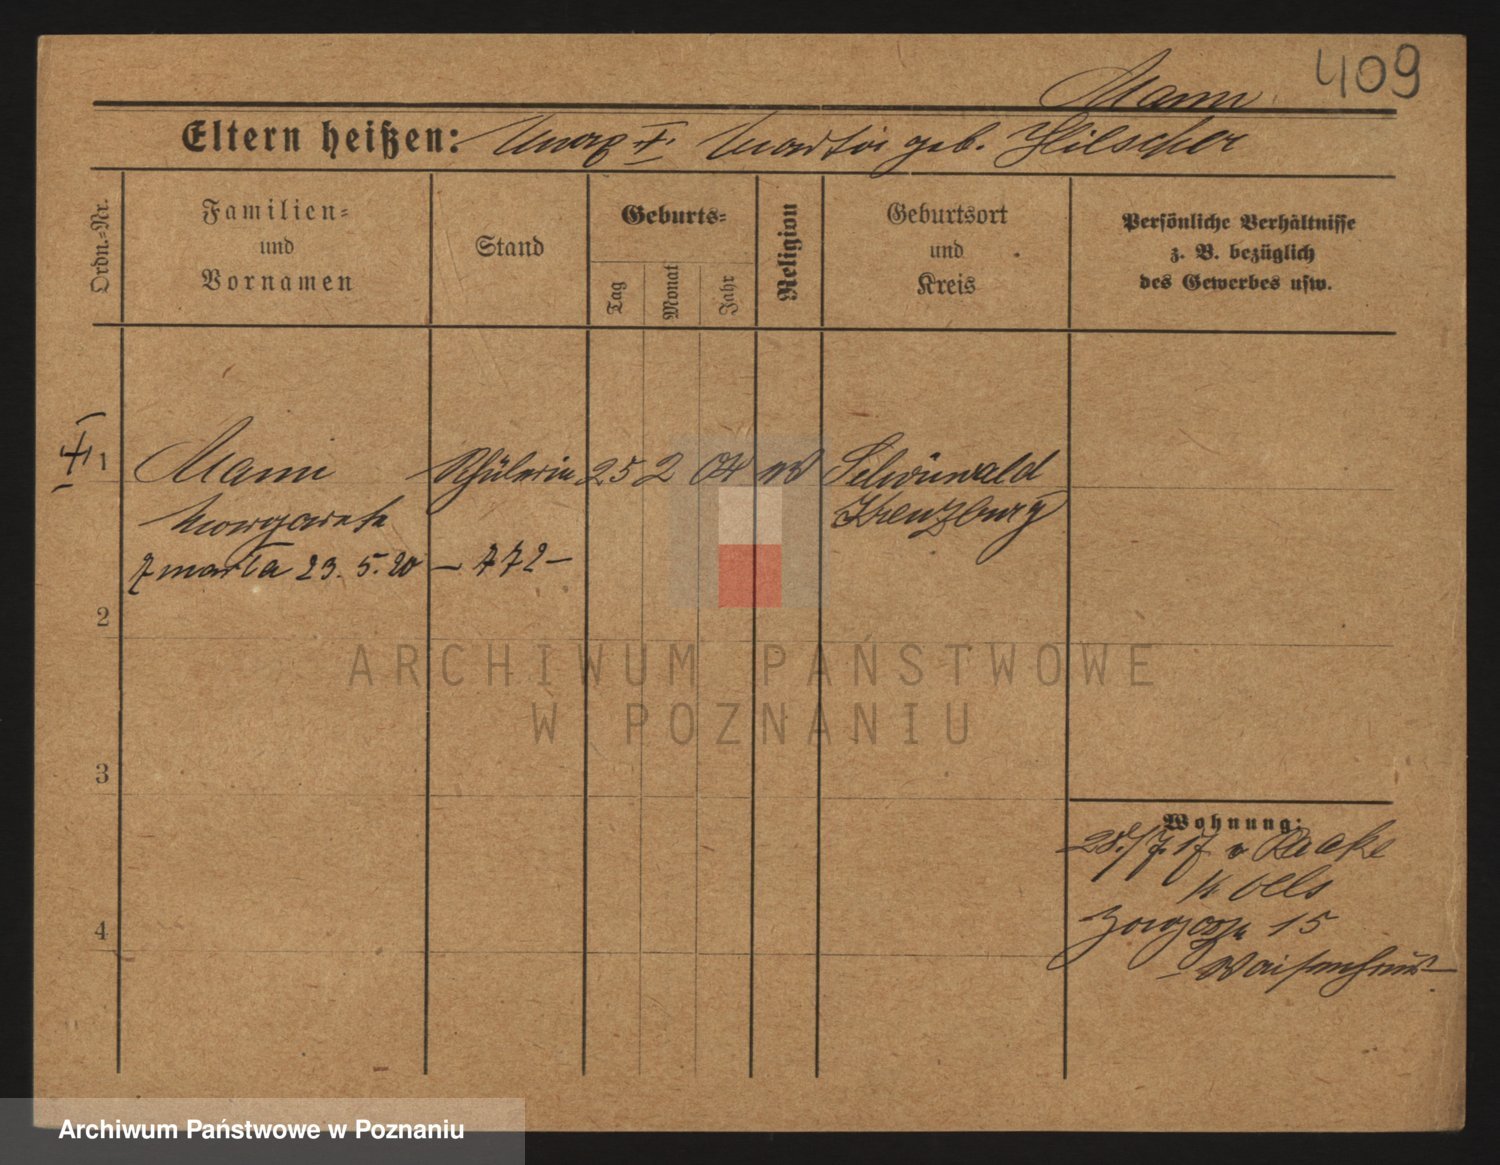 409
Mann
Eltern heißen: Max Martha geb. Hilscher
Ordn.-Nr.
Familien-
und
Vornamen
Stand
Geburts-
Tag
Monat
Jahr
Religion
Geburtsort
und
Kreis
Persönliche Verhältnisse
z. B. bezüglich
des Gewerbes usw.
1 Mann Schülerin 25 2 04 Schönwald
Margarete Kreuzburg
zmarła 23. 5. 20 — 772 —
2
3
4
Wohnung:
28./7. 17 v Raake
Kr. Oels
15
Waisenhaus
ARCHIWUM PAŃSTWOWE
W POZNANIU
Archiwum Państwowe w Poznaniu